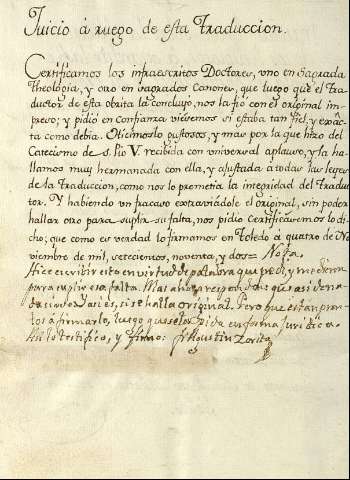 Juicio á ruego de esta Traduccion.
Certificamos los infraescritos Doctores, uno en Sagrada
Theologia, y otro en sagrados Canones, que luego que el Tra-
ductor de esta obrita la concluyó, nos la fió con el original im-
preso; y pidió en confianza viesemos si estaba tan fiel, y exâc-
ta como debia. Oticimoslo gustosos, y mas por la que hizo del
Catecismo de S. Pio V. recibida con universal aplauso, y la ha-
llamos muy hermanada con ella, y ajustada á todas las leyes
de la Traduccion, como nos lo prometia la integridad del Traduc-
tor. Y habiendo un fracaso extraviadole el original, sin poder
hallar otro para suplir su falta, nos pidió Certificasemos lo di-
cho, que como es verdad lo firmamos en Toledo á quatro de No-
viembre de mil, setecientos, noventa, y dos= Nota.
Hice envivir esto en virtud de palabra que
para suplir esa falta. Mas ahora responden: que asi de na-
da sirve. Y asi es, si se halla original. Pero que estan pron-
tos á firmarlo, luego que se les pida en forma juridica.
Asi lo testifico, y firmo= fr. Agustin Zorita